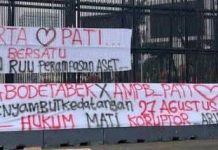 RTA ♡ PATI...
BERSATU
RUU Perampasan ASET
BODETABEK X AMPB-PATI ♡
MENYAMBUT KEDATANGAN AGUSTUS
HUKUM MATI KORUPTOR